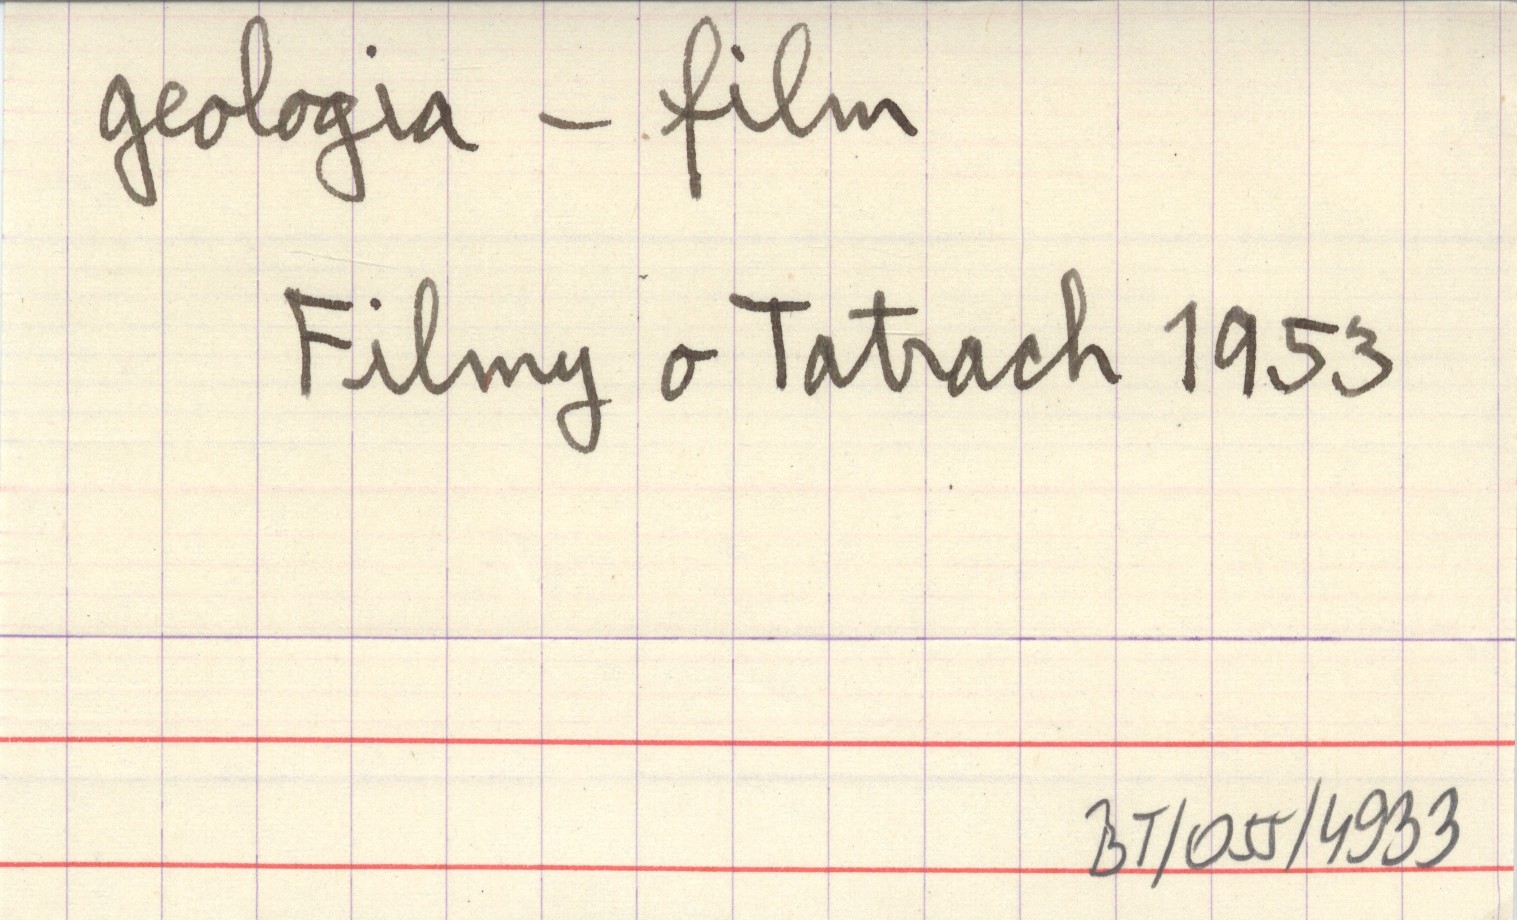 geologia – film
Filmy o Tatrach 1953
BT/055/4933